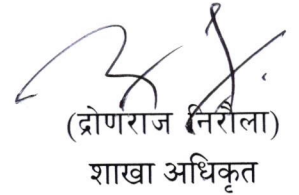 (द्रोणराज निरौला)
शाखा अधिकृत